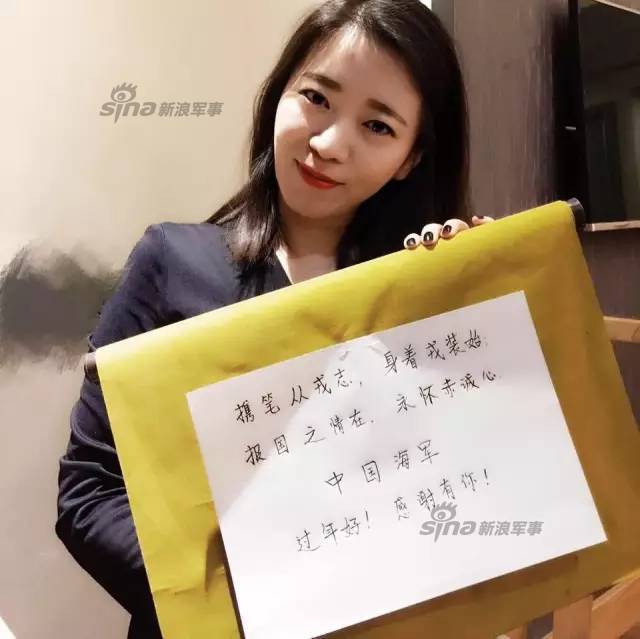 sina新浪军事
携笔从戎志，身着戎装始，
报国之情在，永怀赤诚心。
中国海军
过年好！感谢有你！
sina新浪军事